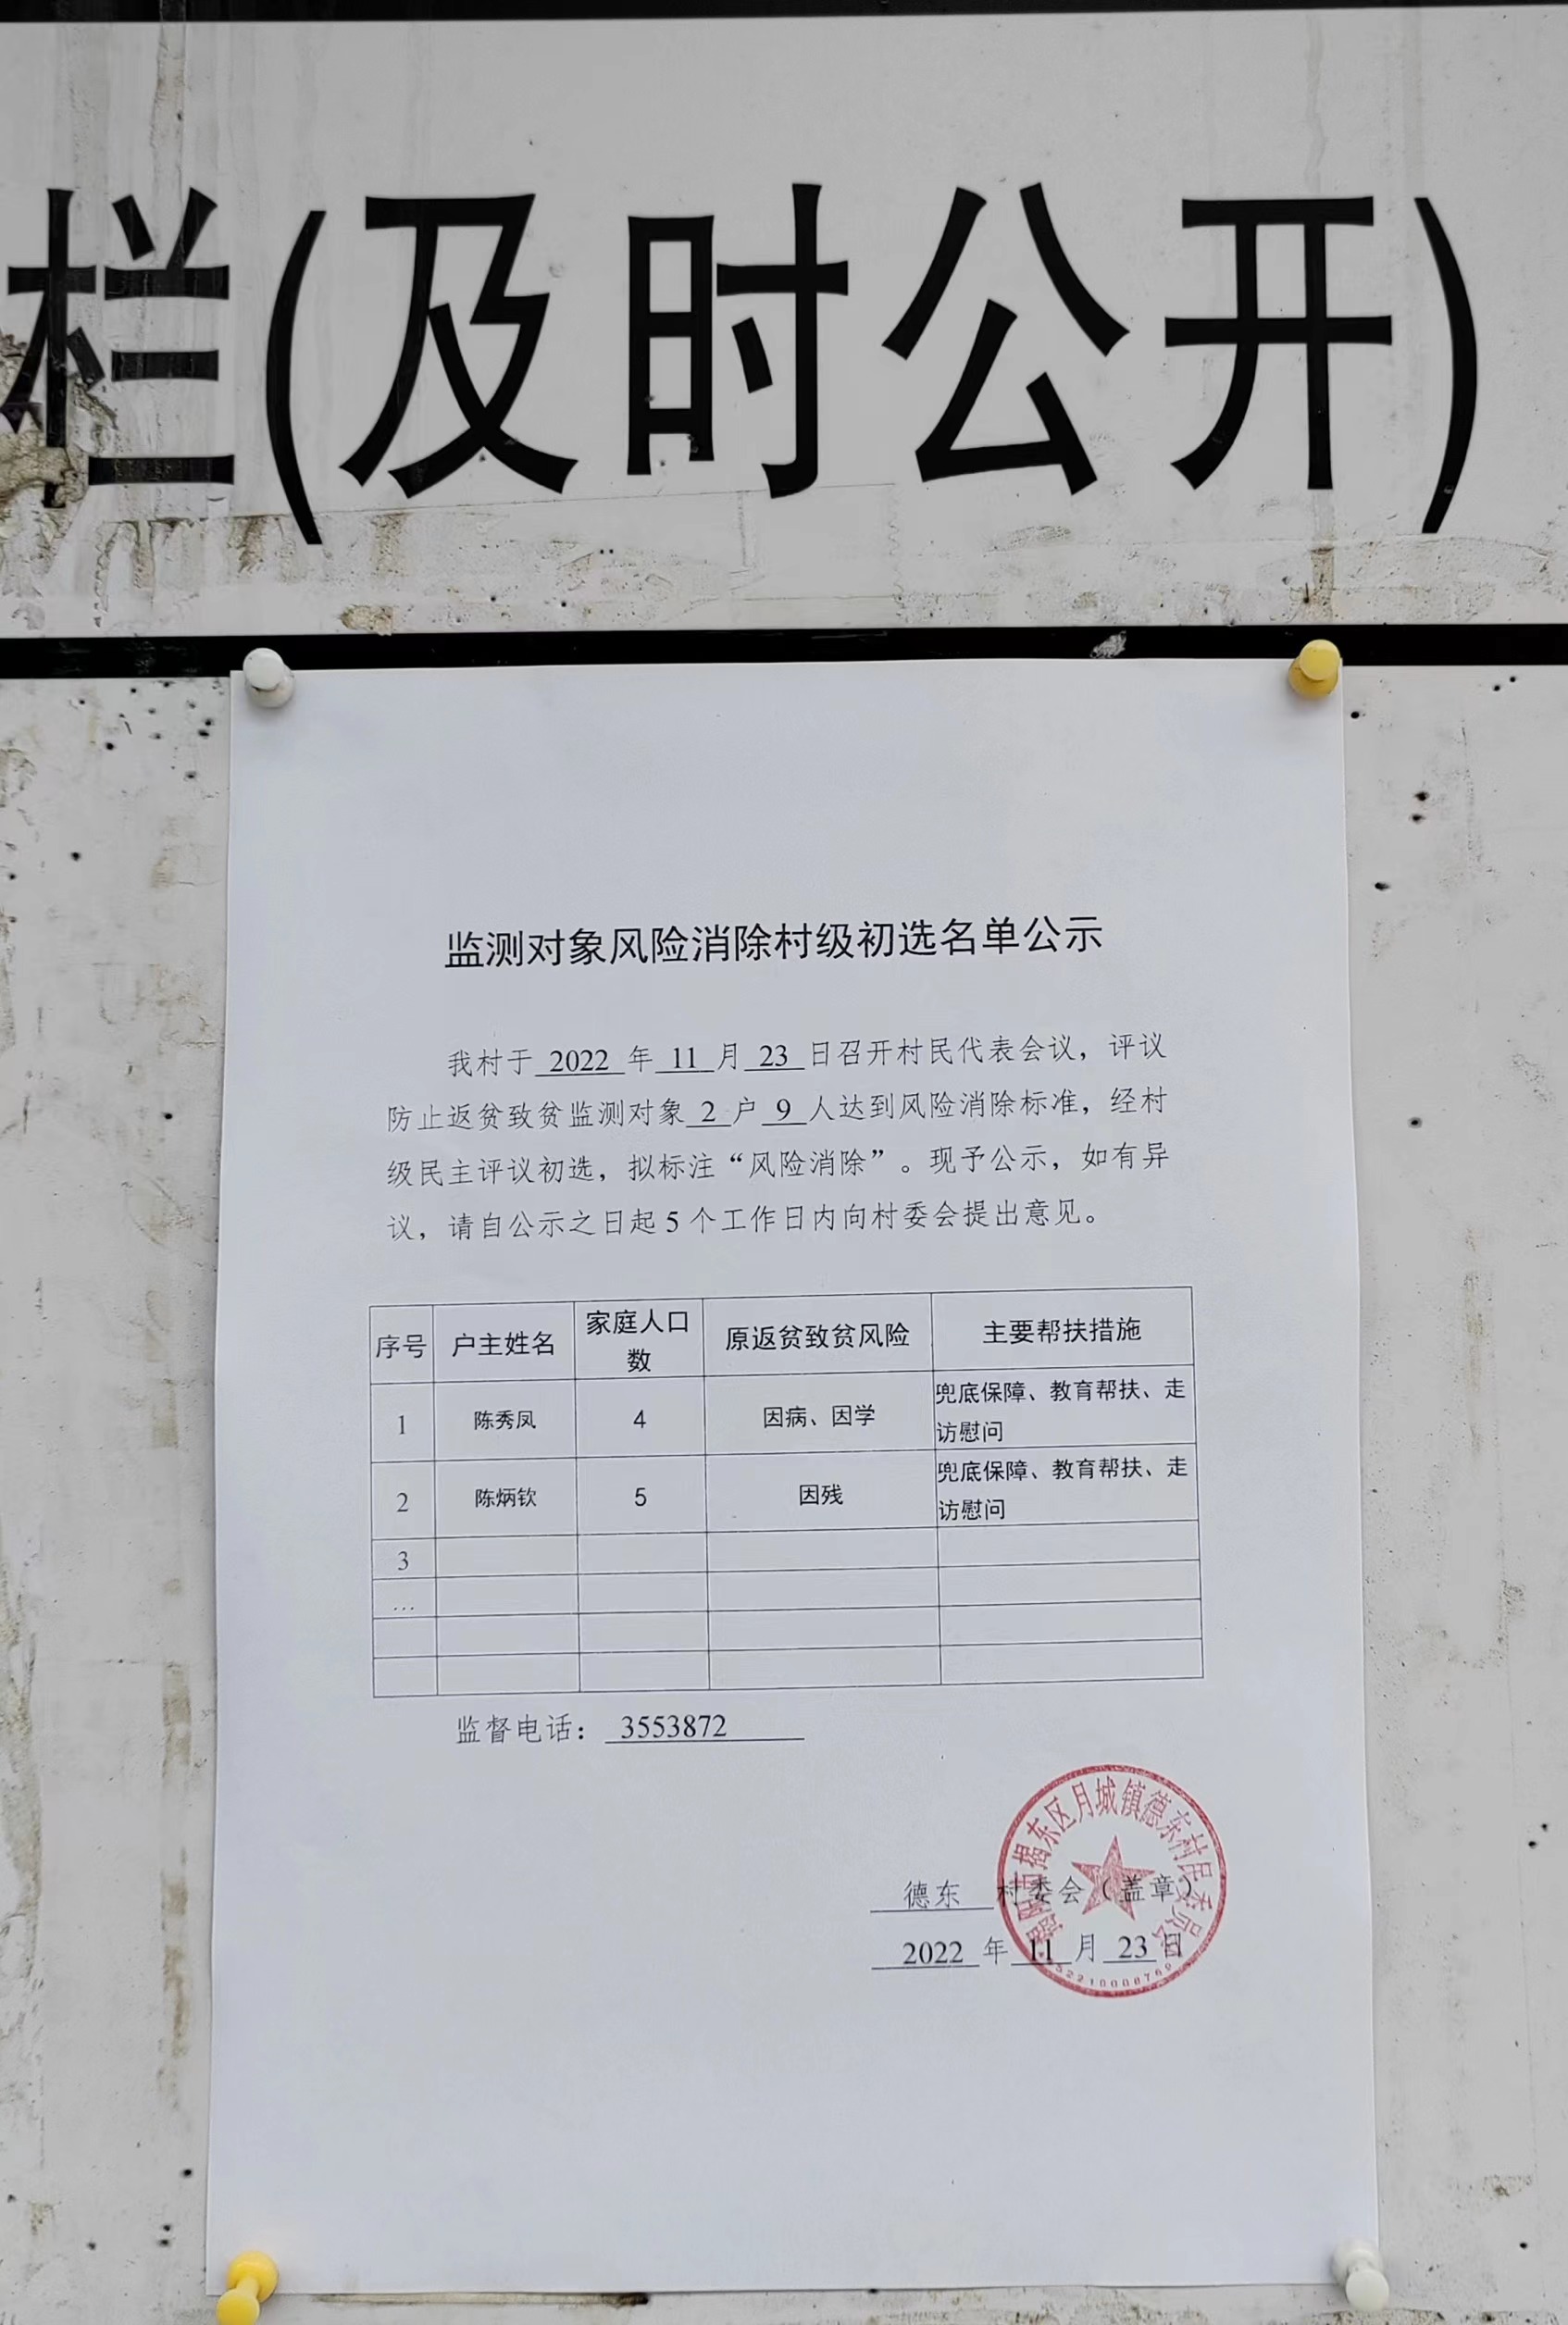 栏(及时公开)
监测对象风险消除村级初选名单公示
我村于 2022 年 11 月 23 日召开村民代表会议，评议
防止返贫致贫监测对象 2 户 9 人达到风险消除标准，经村
级民主评议初选，拟标注“风险消除”。现予公示，如有异
议，请自公示之日起 5 个工作日内向村委会提出意见。
序号 户主姓名 家庭人口数 原返贫致贫风险 主要帮扶措施
1 陈秀凤 4 因病、因学 兜底保障、教育帮扶、走访慰问
2 陈炳钦 5 因残 兜底保障、教育帮扶、走访慰问
3
…
监督电话： 3553872
揭阳市揭东区月城镇德东村民委员会
德东 村委会（盖章）
2022 年 11 月 23 日